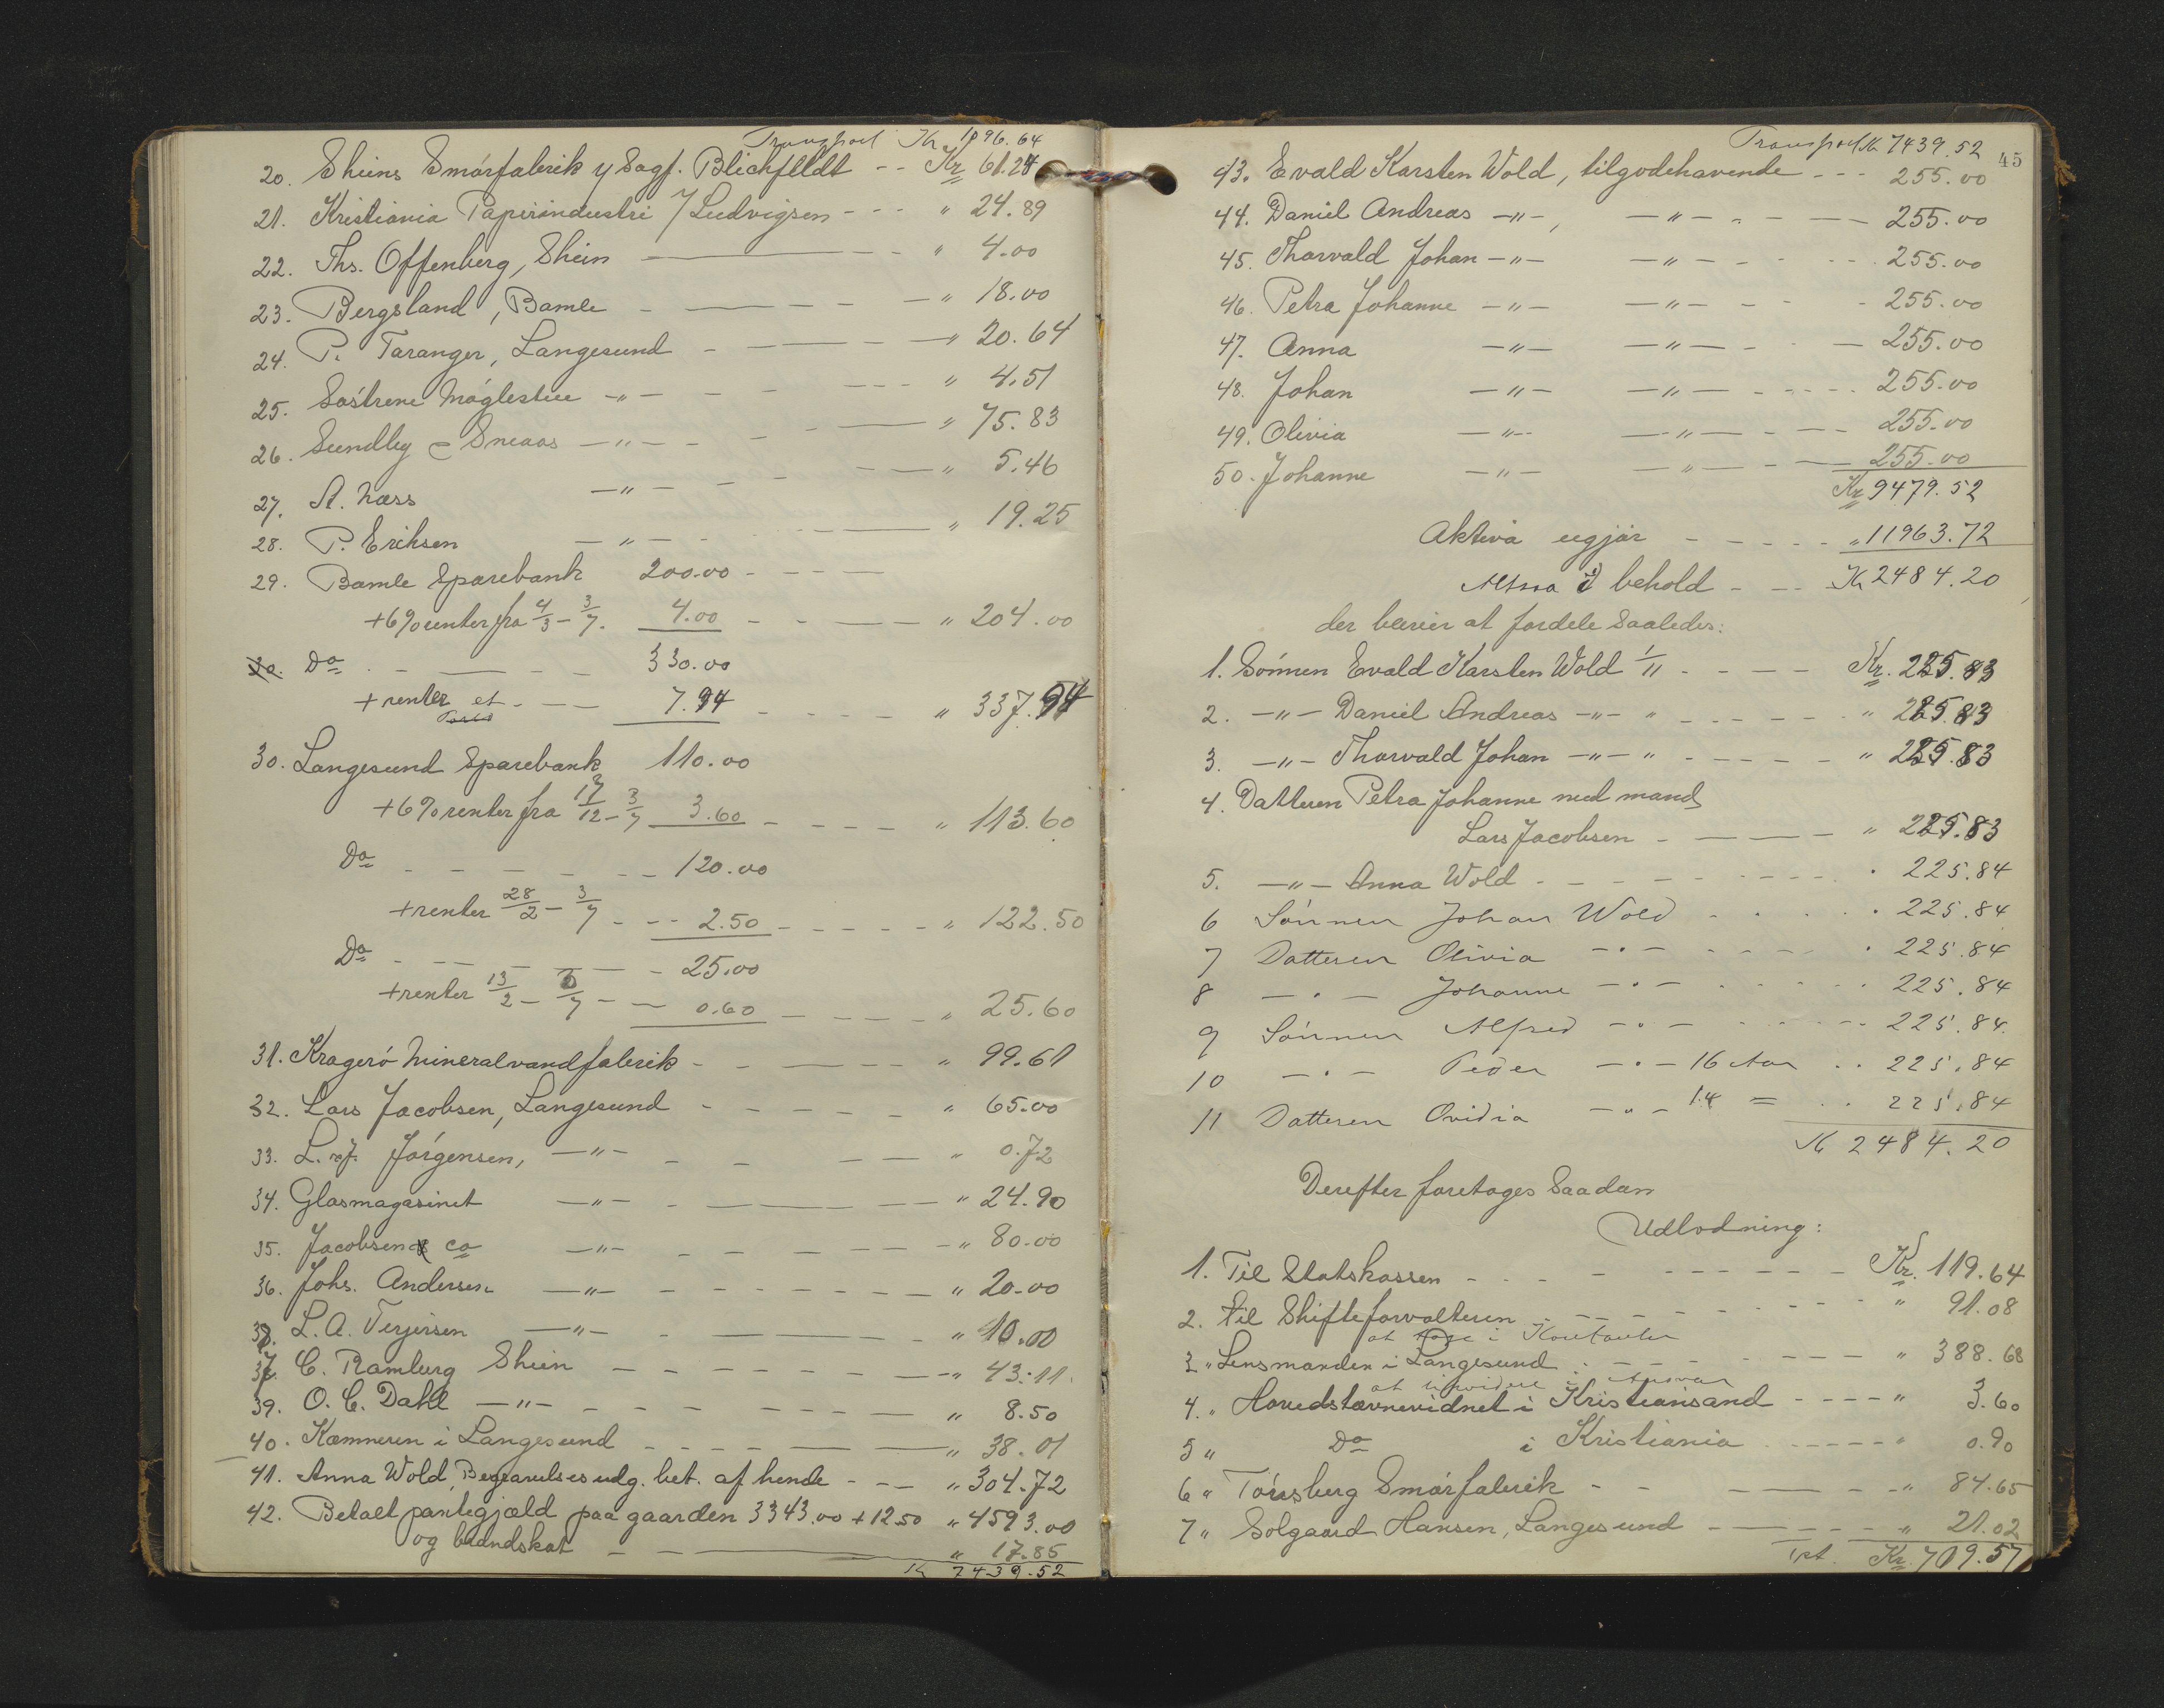 Transport Kr 1096.64
20. Skiens Smörfabrik v/ Sagf. Blichfeldt -- Kr 61.24
21. Kristiania Papirindustri v/ Ludvigsen --- " 24.89
22. Ths. Offenberg, Skien — " 4.00
23. Bergsland, Bamle — " 18.00
24. P. Taranger, Langesund — " 20.64
25. Söstrene Möglestue —"— " 4.51
26. Sundby & Sneaas —"— " 75.83
27. A. Næss —"— " 5.46
28. P. Eriksen —"— " 19.25
29. Bamle Sparebank 200.00 ----
+6% renter fra 4/3 - 3/7. 4.00 — " 204.00
30. Do — 330.00
+ renter et 7.94 — " 337.94
30. Langesund Sparebank 110.00
+6% renter fra 17/12 - 3/7 3.60 — " 113.60
Do — 120.00
+renter 28/2 - 3/7 -- 2.50 — " 122.50
Do — 25.00
+renter 13/2 - 3/7 — 0.60 — " 25.60
31. Kragerö Mineralvandfabrik — " 99.61
32. Lars Jacobsen, Langesund — " 65.00
33. L. Jörgensen, —"— " 0.72
34. Glasmagasinet —"— " 24.90
35. Jacobsen & Co —"— " 80.00
36. Johs. Andersen —"— " 20.00
38. L. A. Terjersen —"— " 10.00
37. C. Ramberg Skien — " 43.11.
39. O. C. Dahl —"— " 8.50
40. Kæmneren i Langesund — " 38.01
41. Anna Wold, Begravelsesudg. bet. af hende -- " 304.72
42. Betalt pantegjæld paa gaarden 3343.00 + 1250 " 4593.00
og brandskat — " 17.85
Kr 7439.52
Transport Kr 7439.52
45
43. Evald Karsten Wold, tilgodehavende --- 255.00
44. Daniel Andreas —"—, —"— 255.00
45. Thorvald Johan —"— —"— 255.00
46. Petra Johanne —"— —"— 255.00
47. Anna —"— —"— 255.00
48. Johan —"— —"— 255.00
49. Olivia —"— —"— 255.00
50. Johanne —"— —"— 255.00
Kr 9479.52
Aktiva ugjör ----- " 11963.72
Altsaa i behold --- Kr 2484.20
der bliver at fordele saaledes:
1. Sönnen Evald Karsten Wold 1/11 ---- Kr. 225.83
2. —"— Daniel Andreas —"— " ------ " 225.83
3. —"— Thorvald Johan —"— " ----- " 225.83
4. Datteren Petra Johanne med mand
Lars Jacobsen — " 225.83
5. —"— Anna Wold ------ " 225.84
6 Sönnen Johan Wold ..... " 225.84
7 Datteren Olivia —"— ----- " 225.84
8 —"— Johanne —"— ...... 225.84
9 Sönnen Alfred —"— ...... 225.84.
10 —"— Peder —"— 16 Aar .. 225.84
11 Datteren Ovidia —"— 14 = .. 225.84
Kr 2484.20
Derefter foretoges saadan
Udlodning:
1. Til Statskassen ------ Kr. 119.64
2. til Skifteforvalteren ------ " 91.08
at tage i Kontanter
3 " Lensmanden i Langesund ------ " 388.68
4. " Hovedstævnevidnet i Kristiansand ---- " 3.60
5 " Do i Kristiania ------ " 0.90
6 " Tönsberg Smörfabrik ------ " 84.65
7 " Solgaard Hansen, Langesund ------ " 21.02
trpt. Kr. 709.57